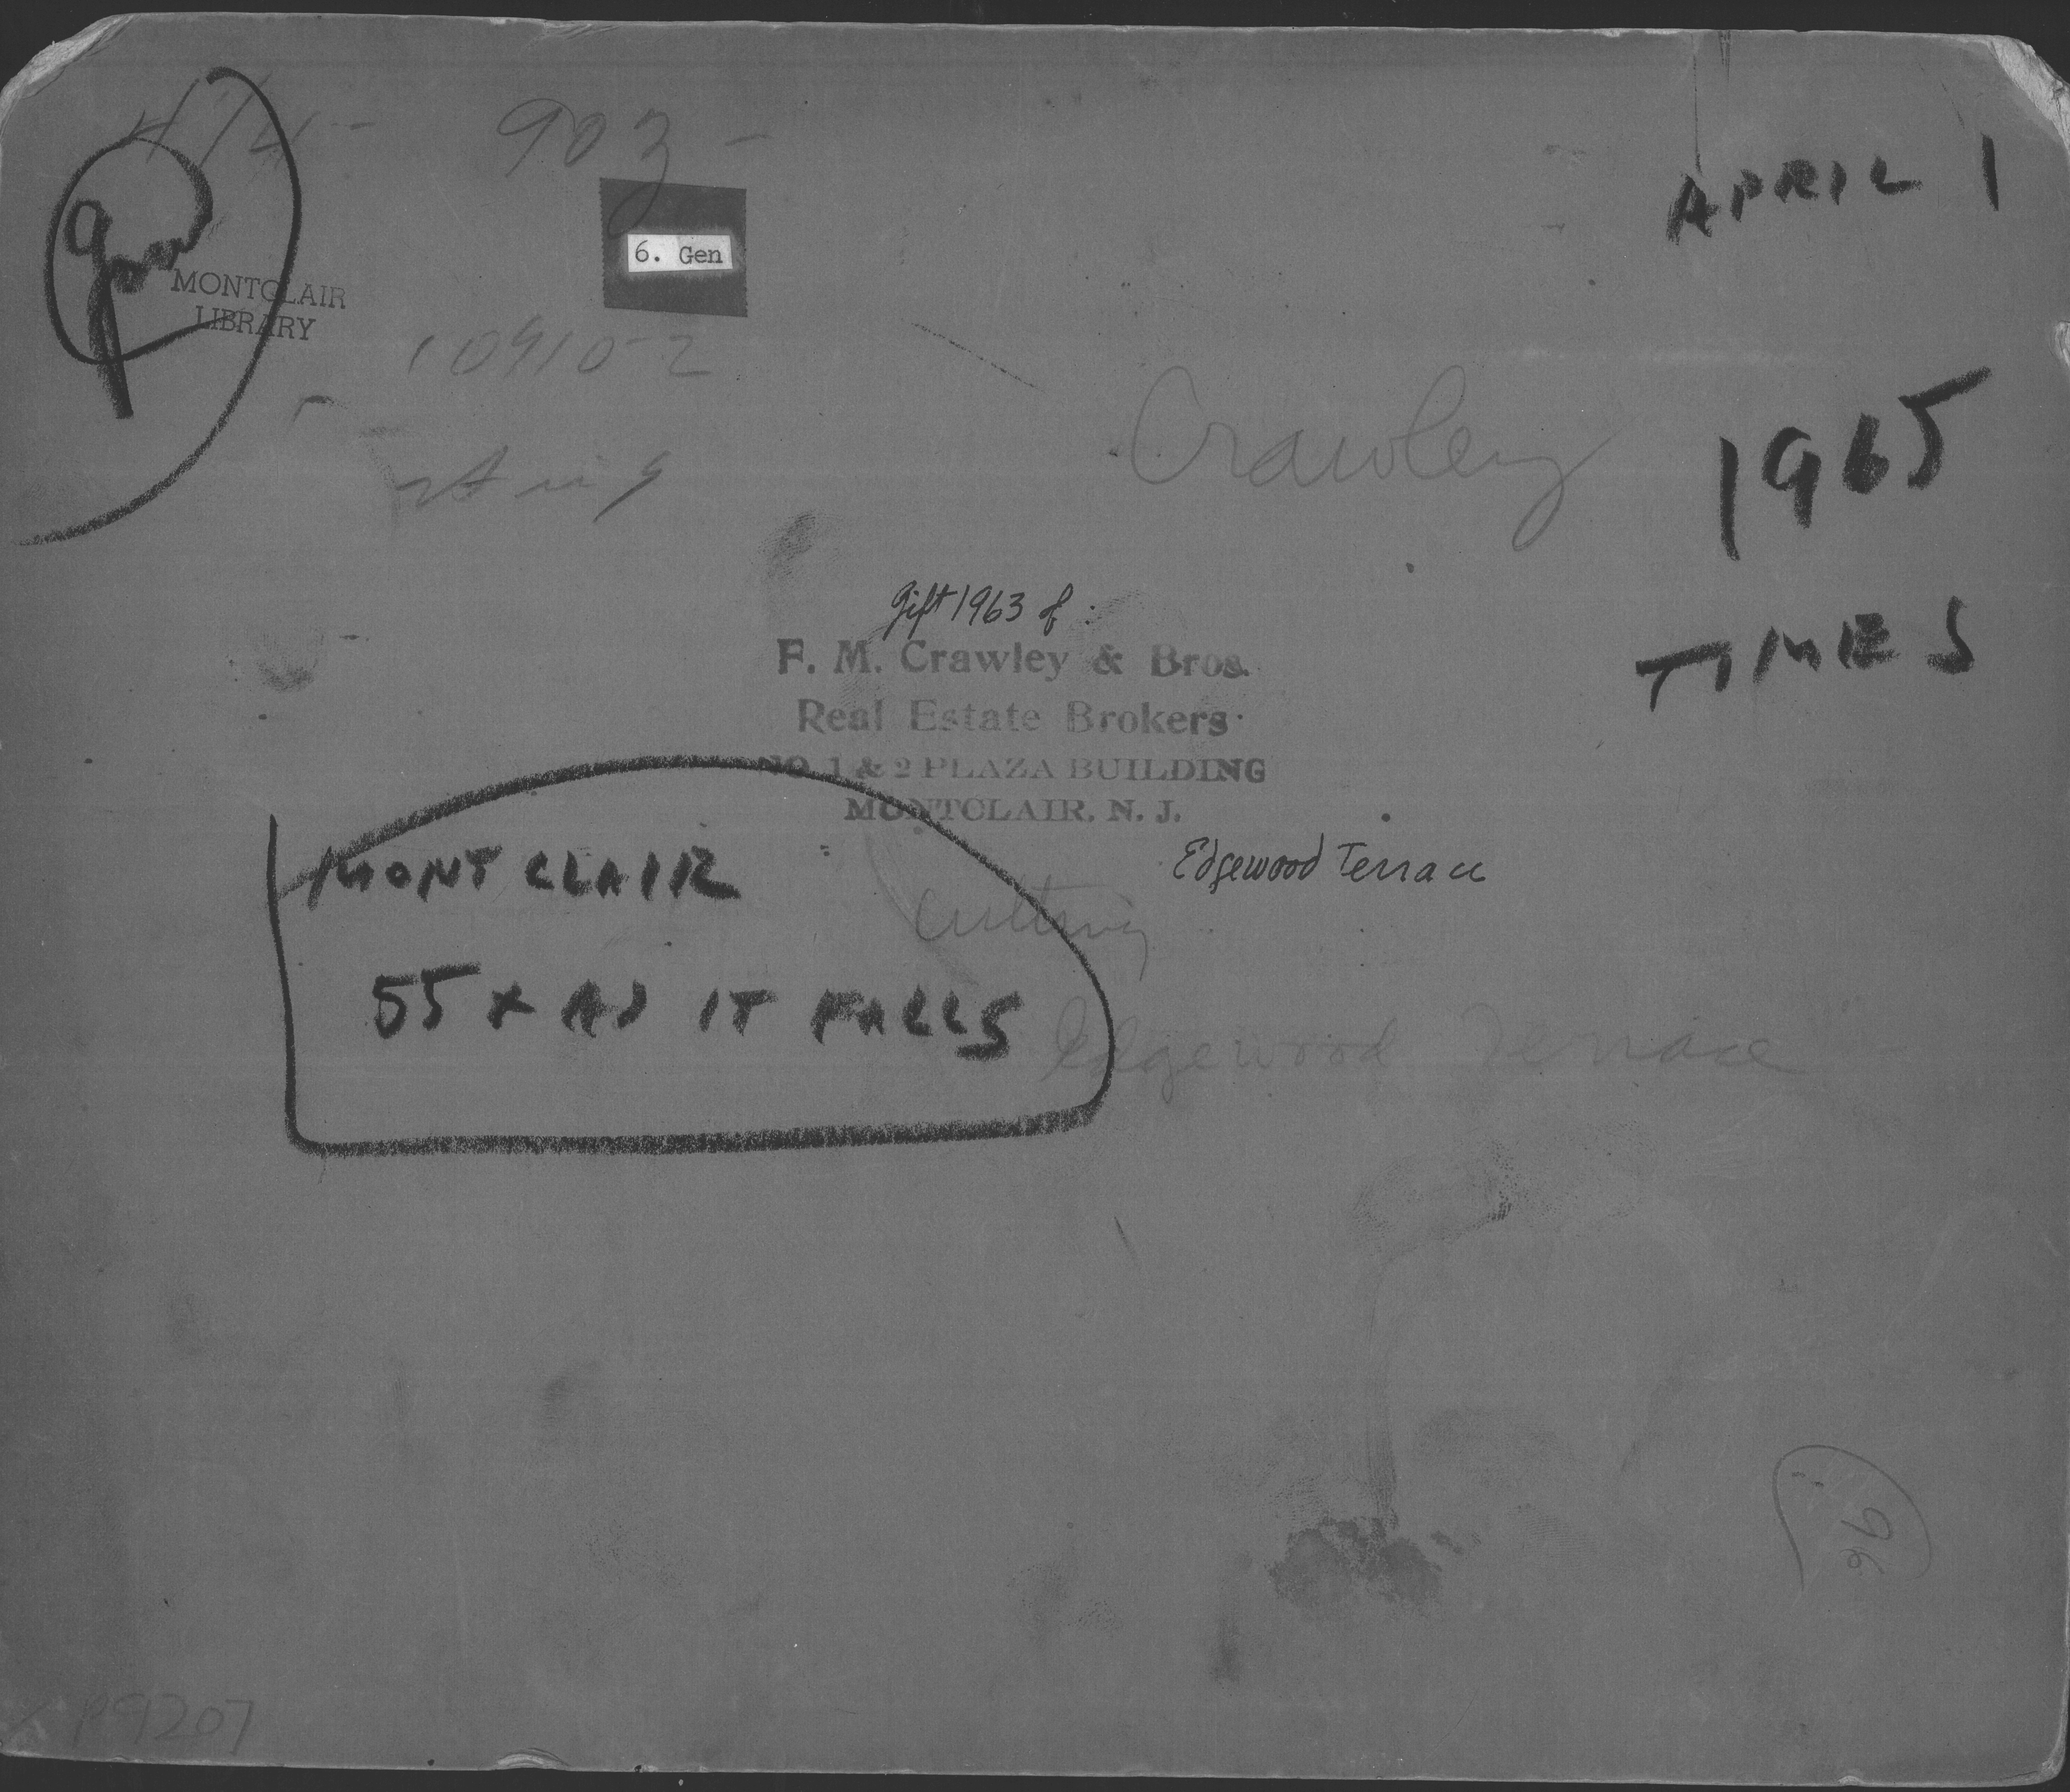 903-
6. Gen
MONTCLAIR
LIBRARY
APRIL 1
1965
TIMES
Crawley
gift 1963 of:
F. M. Crawley & Bros.
Real Estate Brokers
NO. 1 & 2 PLAZA BUILDING
MONTCLAIR, N. J.
Edgewood Terrace
MONTCLAIR
55 x AS IT FALLS
Cutting
Edgewood Terrace
96
P9207